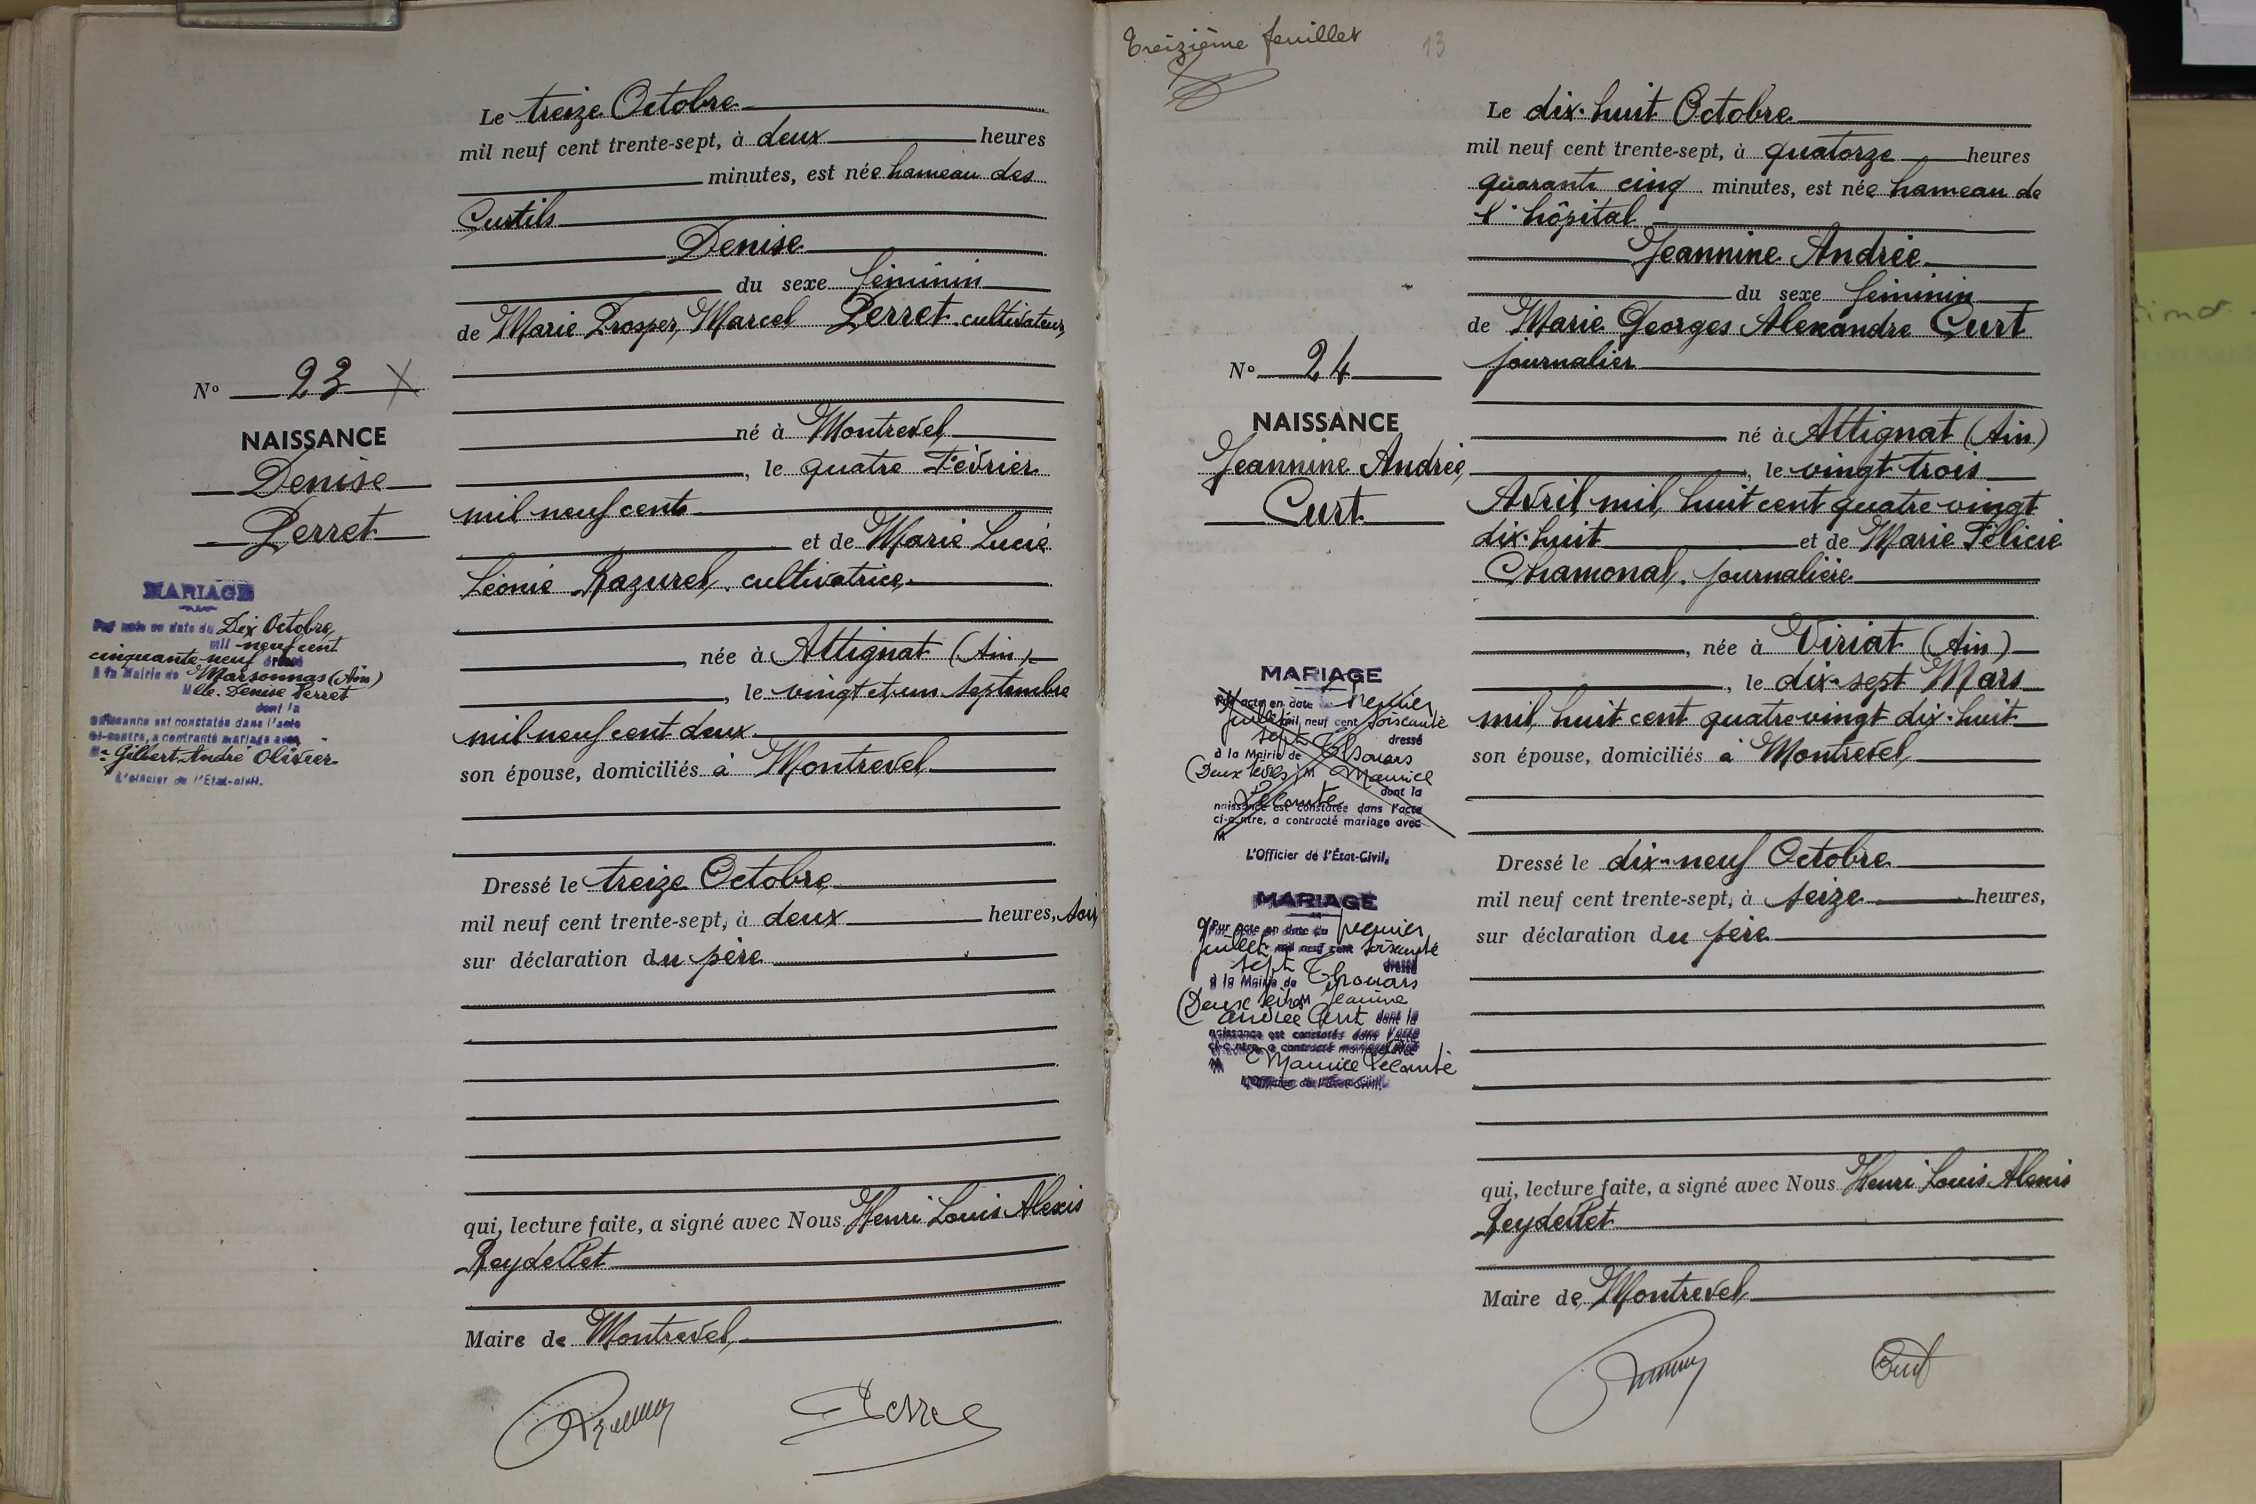 Le treize Octobre
mil neuf cent trente-sept, à deux heures
minutes, est née hameau des
Curtils
Denise
du sexe féminin
de Marie Prosper, Marcel Perret cultivateur,
né à Montrevel
, le quatre Février
mil neuf cent
et de Marie Lucie
Léonie Razurel, cultivatrice
, née à Attignat (Ain)
, le vingt et un septembre
mil neuf cent deux
son épouse, domiciliés à Montrevel
Dressé le treize Octobre
mil neuf cent trente-sept, à deux heures, soir,
sur déclaration du père
qui, lecture faite, a signé avec Nous Henri Louis Alexis
Reydellet
Maire de Montrevel,
Perret
N° 23
NAISSANCE
Denise
Perret
MARIAGE
Par acte en date du Dix Octobre
mil neuf cent
cinquante-neuf dressé
à la Mairie de Marsonnas (Ain)
Mlle. Denise Perret
dont la
naissance est constatée dans l'acte
ci-contre, a contracté mariage avec
Mr Gilbert André Olivier
L'officier de l'Etat-civil.
Treizième feuillet 13
Le dix-huit Octobre
mil neuf cent trente-sept, à quatorze heures
quarante cinq minutes, est née hameau de
l'hôpital
Jeannine Andrée
du sexe féminin
de Marie Georges Alexandre Curt
journalier
né à Attignat (Ain)
, le vingt trois
Avril mil huit cent quatre vingt
dix-huit et de Marie Félicie
Chamonal, journalière
, née à Viriat (Ain)
, le dix-sept Mars
mil huit cent quatre vingt dix-huit
son épouse, domiciliés à Montrevel
Dressé le dix-neuf Octobre
mil neuf cent trente-sept, à seize heures,
sur déclaration du père
qui, lecture faite, a signé avec Nous Henri Louis Alexis
Reydellet
Maire de Montrevel
Curt
N° 24
NAISSANCE
Jeannine Andrée,
Curt
MARIAGE
Par acte en date du premier
juillet mil neuf cent soixante
sept dressé
à la Mairie de Thouars
(Deux Sèvres) M Maurice
Lecomte dont la
naissance est constatée dans l'acte
ci-contre, a contracté mariage avec
M
L'Officier de l'État-Civil,
MARIAGE
Par acte en date du premier
juillet mil neuf cent soixante
sept dressé
à la Mairie de Thouars
(Deux Sèvres M Jeanine
Andrée Curt dont la
naissance est constatée dans l'acte
ci-contre, a contracté mariage avec
M Maurice Lecomte
L'Officier de l'État-Civil,